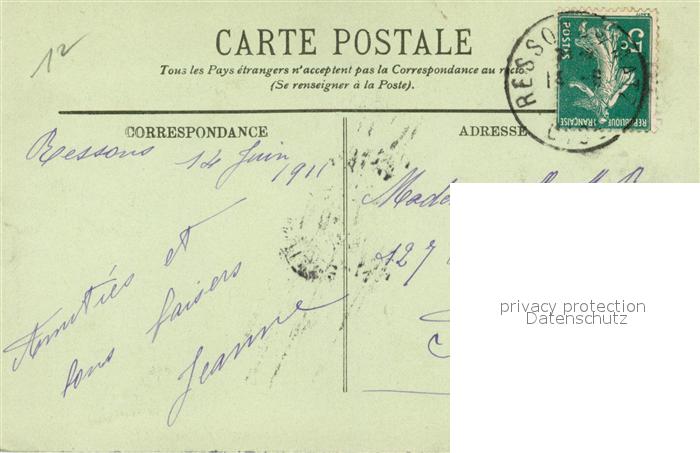 12
CARTE POSTALE
Tous les Pays étrangers n'acceptent pas la Correspondance au recto
(Se renseigner à la Poste).
RESSO
5c
POSTES
REPUBLIQUE FRANÇAISE
CORRESPONDANCE
ADRESSE
Ressons 14 Juin 1911
Amitiés et
bons baisers
Jeanne
127
privacy protection
Datenschutz